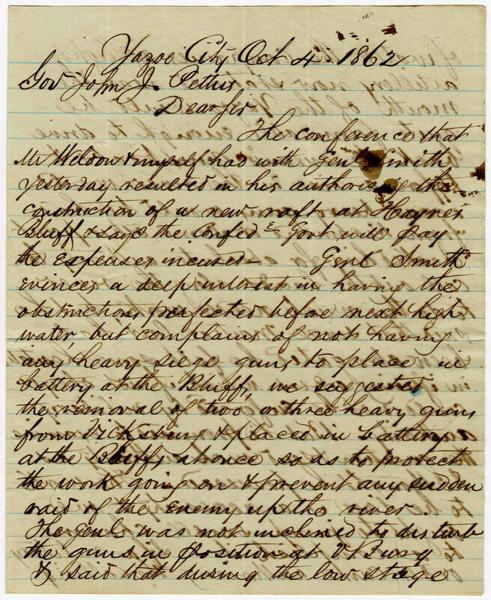 Yazoo City Oct 4 1862
Gov John J. Pettus
Dear Sir
The conference that
Mr Weldon & myself had with Genl Smith
yesterday resulted in his authorising the
construction of a new raft at Haynes
Bluff & says the Confed Govt will pay
the expenses incured — Genl Smith
evinces a deep interest in having the
obstructions perfected before next high
water, but complains of not having
any heavy siege guns to place in
battery at the Bluff, we suggested
the removal of two or three heavy guns
from Vicksburg & placed in battery
at the Bluffs at once so as to protect
the work going on & prevent any sudden
raid of the enemy up the river
The Genls was not inclined to disturb
the guns in position at V Burg
& said that during the low stage